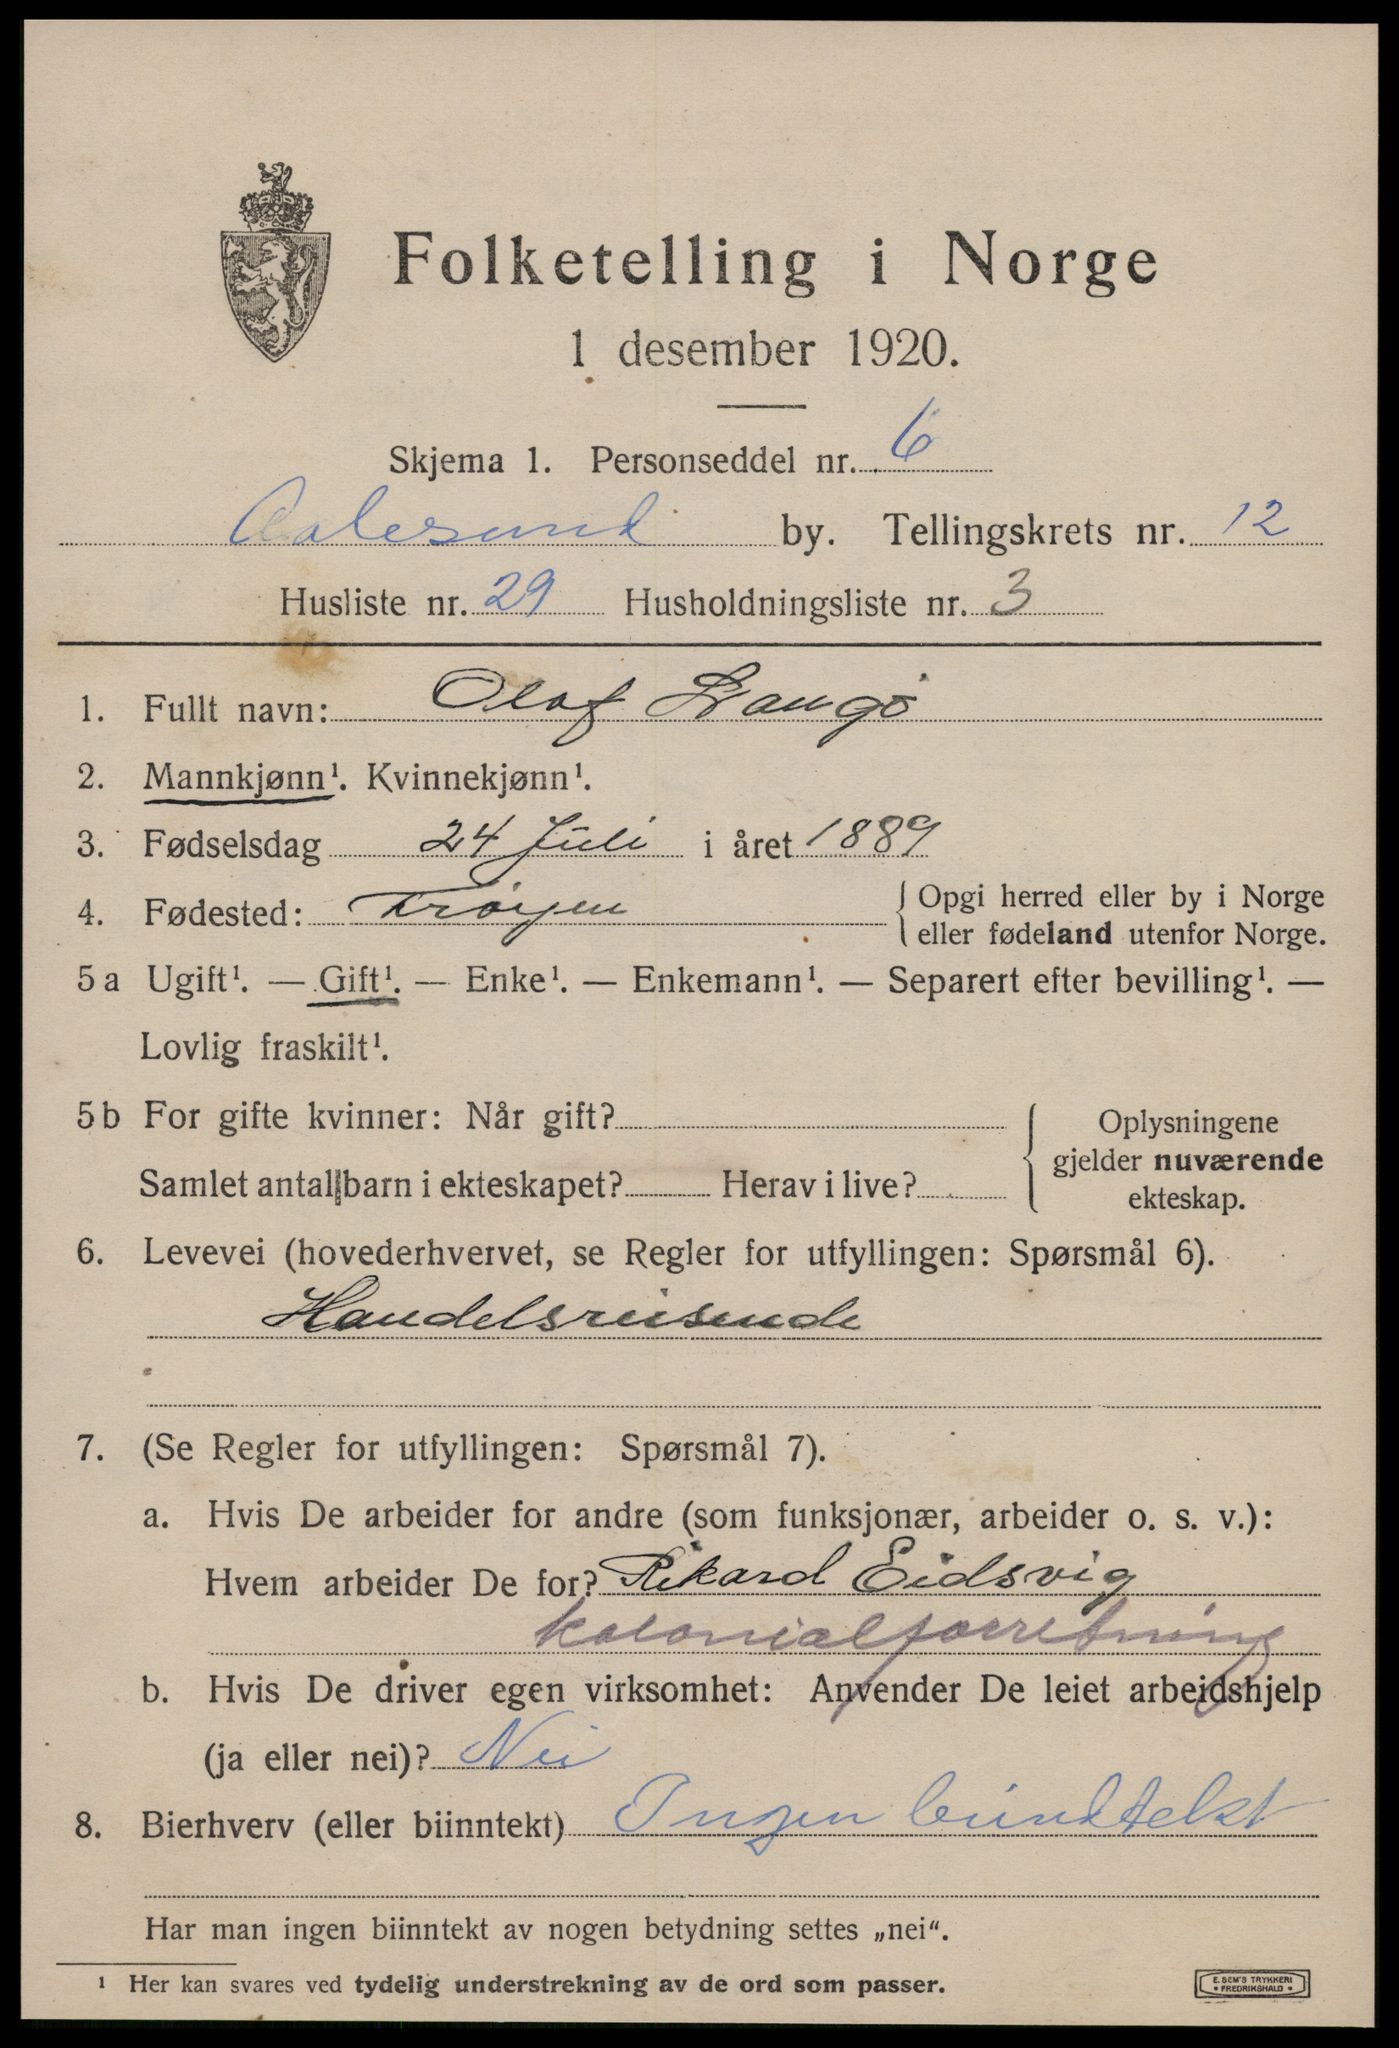 Folketelling i Norge
1 desember 1920.
Skjema 1. Personseddel nr. 6
Aalesund by. Tellingskrets nr. 12
Husliste nr. 29 Husholdningsliste nr. 3
1. Fullt navn: Olaf Langö
2. Mannkjønn¹. Kvinnekjønn¹.
3. Fødselsdag 24 Juli i året 1889
4. Fødested: Frøyen { Opgi herred eller by i Norge
eller fødeland utenfor Norge.
5 a Ugift¹. — Gift¹. — Enke¹. — Enkemann¹. — Separert efter bevilling¹. —
Lovlig fraskilt¹.
5 b For gifte kvinner: Når gift? { Oplysningene
gjelder nuværende
Samlet antall barn i ekteskapet? Herav i live?
ekteskap.
6. Levevei (hovederhvervet, se Regler for utfyllingen: Spørsmål 6).
Handelsreisende
7. (Se Regler for utfyllingen: Spørsmål 7).
a. Hvis De arbeider for andre (som funksjonær, arbeider o. s. v.):
Hvem arbeider De for? Rikard Eidsvig
kolonialforretning
b. Hvis De driver egen virksomhet: Anvender De leiet arbeidshjelp
(ja eller nei)? Nei
8. Bierhverv (eller biinntekt) Ingen biindtekt
Har man ingen biinntekt av nogen betydning settes „nei“.
¹ Her kan svares ved tydelig understrekning av de ord som passer.
E. SEM'S TRYKKERI
• FREDRIKSHALD •